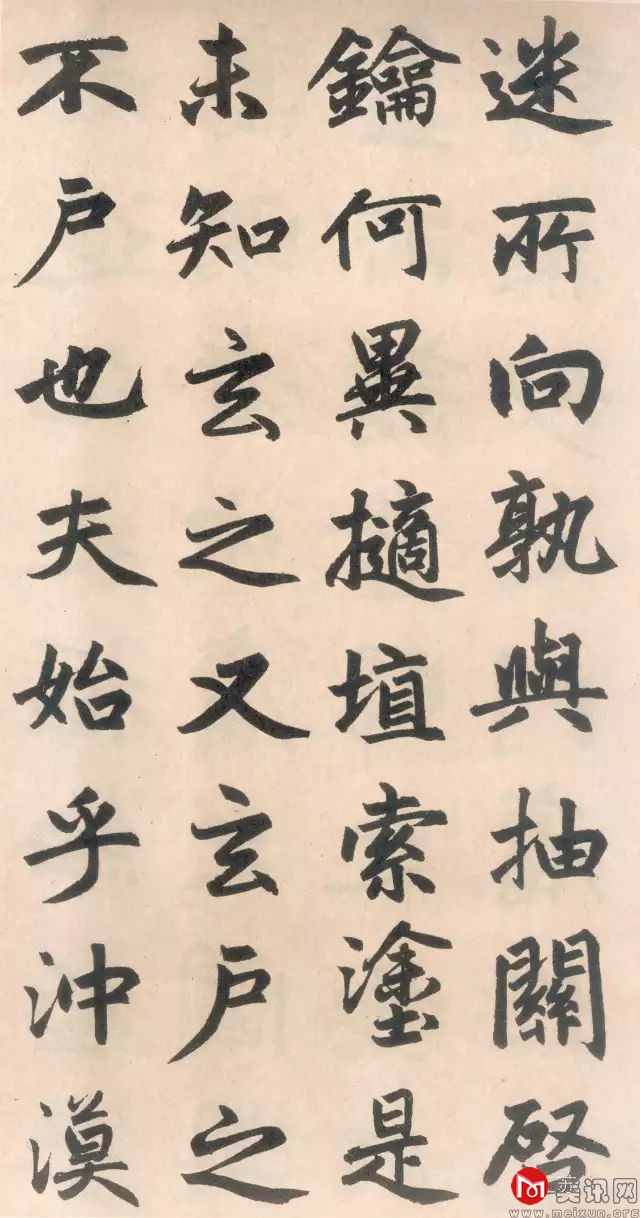 迷所向孰與抽關啓
鑰何異擿埴索塗是
未知玄之又玄户之
不户也夫始乎沖漠
美讯网
www.meixun.org